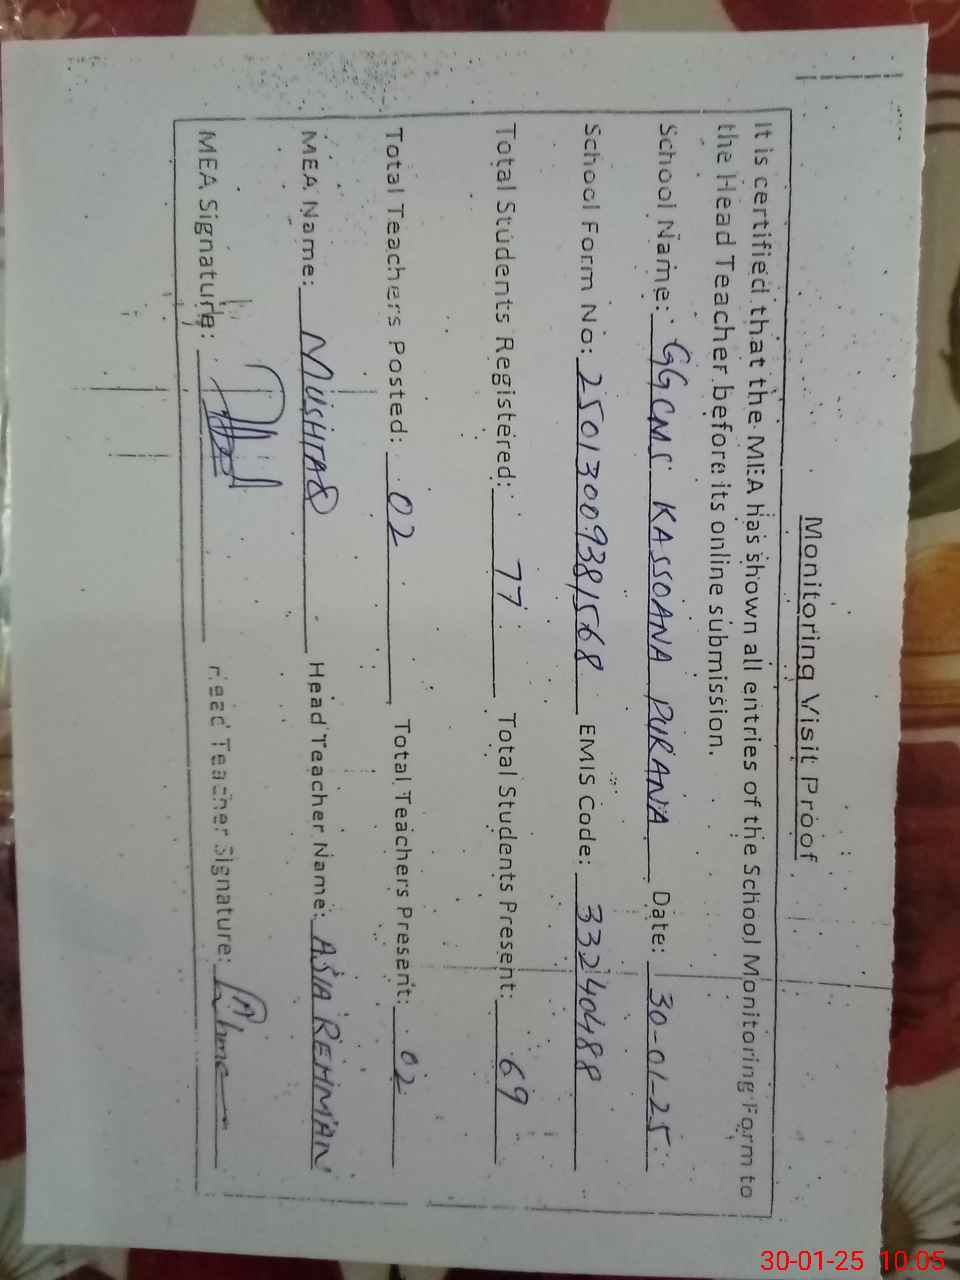 Monitoring Visit Proof
It is certified that the MEA has shown all entries of the School Monitoring Form to
the Head Teacher before its online submission.
School Name: GGCMS KASSOANA PURANA Date: 30-01-25
School Form No: 25013009381568 EMIS Code: 33240488
Total Students Registered: 77 Total Students Present: 69
Total Teachers Posted: 02 Total Teachers Present: 02
MEA Name: MUSHTAQ Head Teacher Name: ASIA REHMAN
MEA Signature: Head Teacher Signature:
30-01-25 10:05